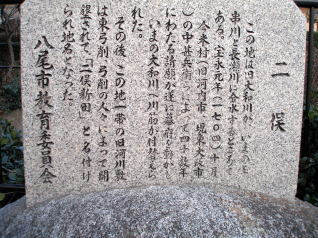 二俣
この地は旧大和川が、いまの玉
串川と長瀬川に分流するところで
ある。宝永元年(一七〇四)十月
今米村(旧河内市、現東大阪市
)の中甚兵衛らによって四十数年
にわたる請願が遂に幕府を動か
し、いまの大和川へ川筋が付替えら
れた。
その後、この地一帯の旧河川敷
は東弓削、弓削の人々によって開
墾されて、「二俣新田」と名付け
られ地名となった。
八尾市教育委員会